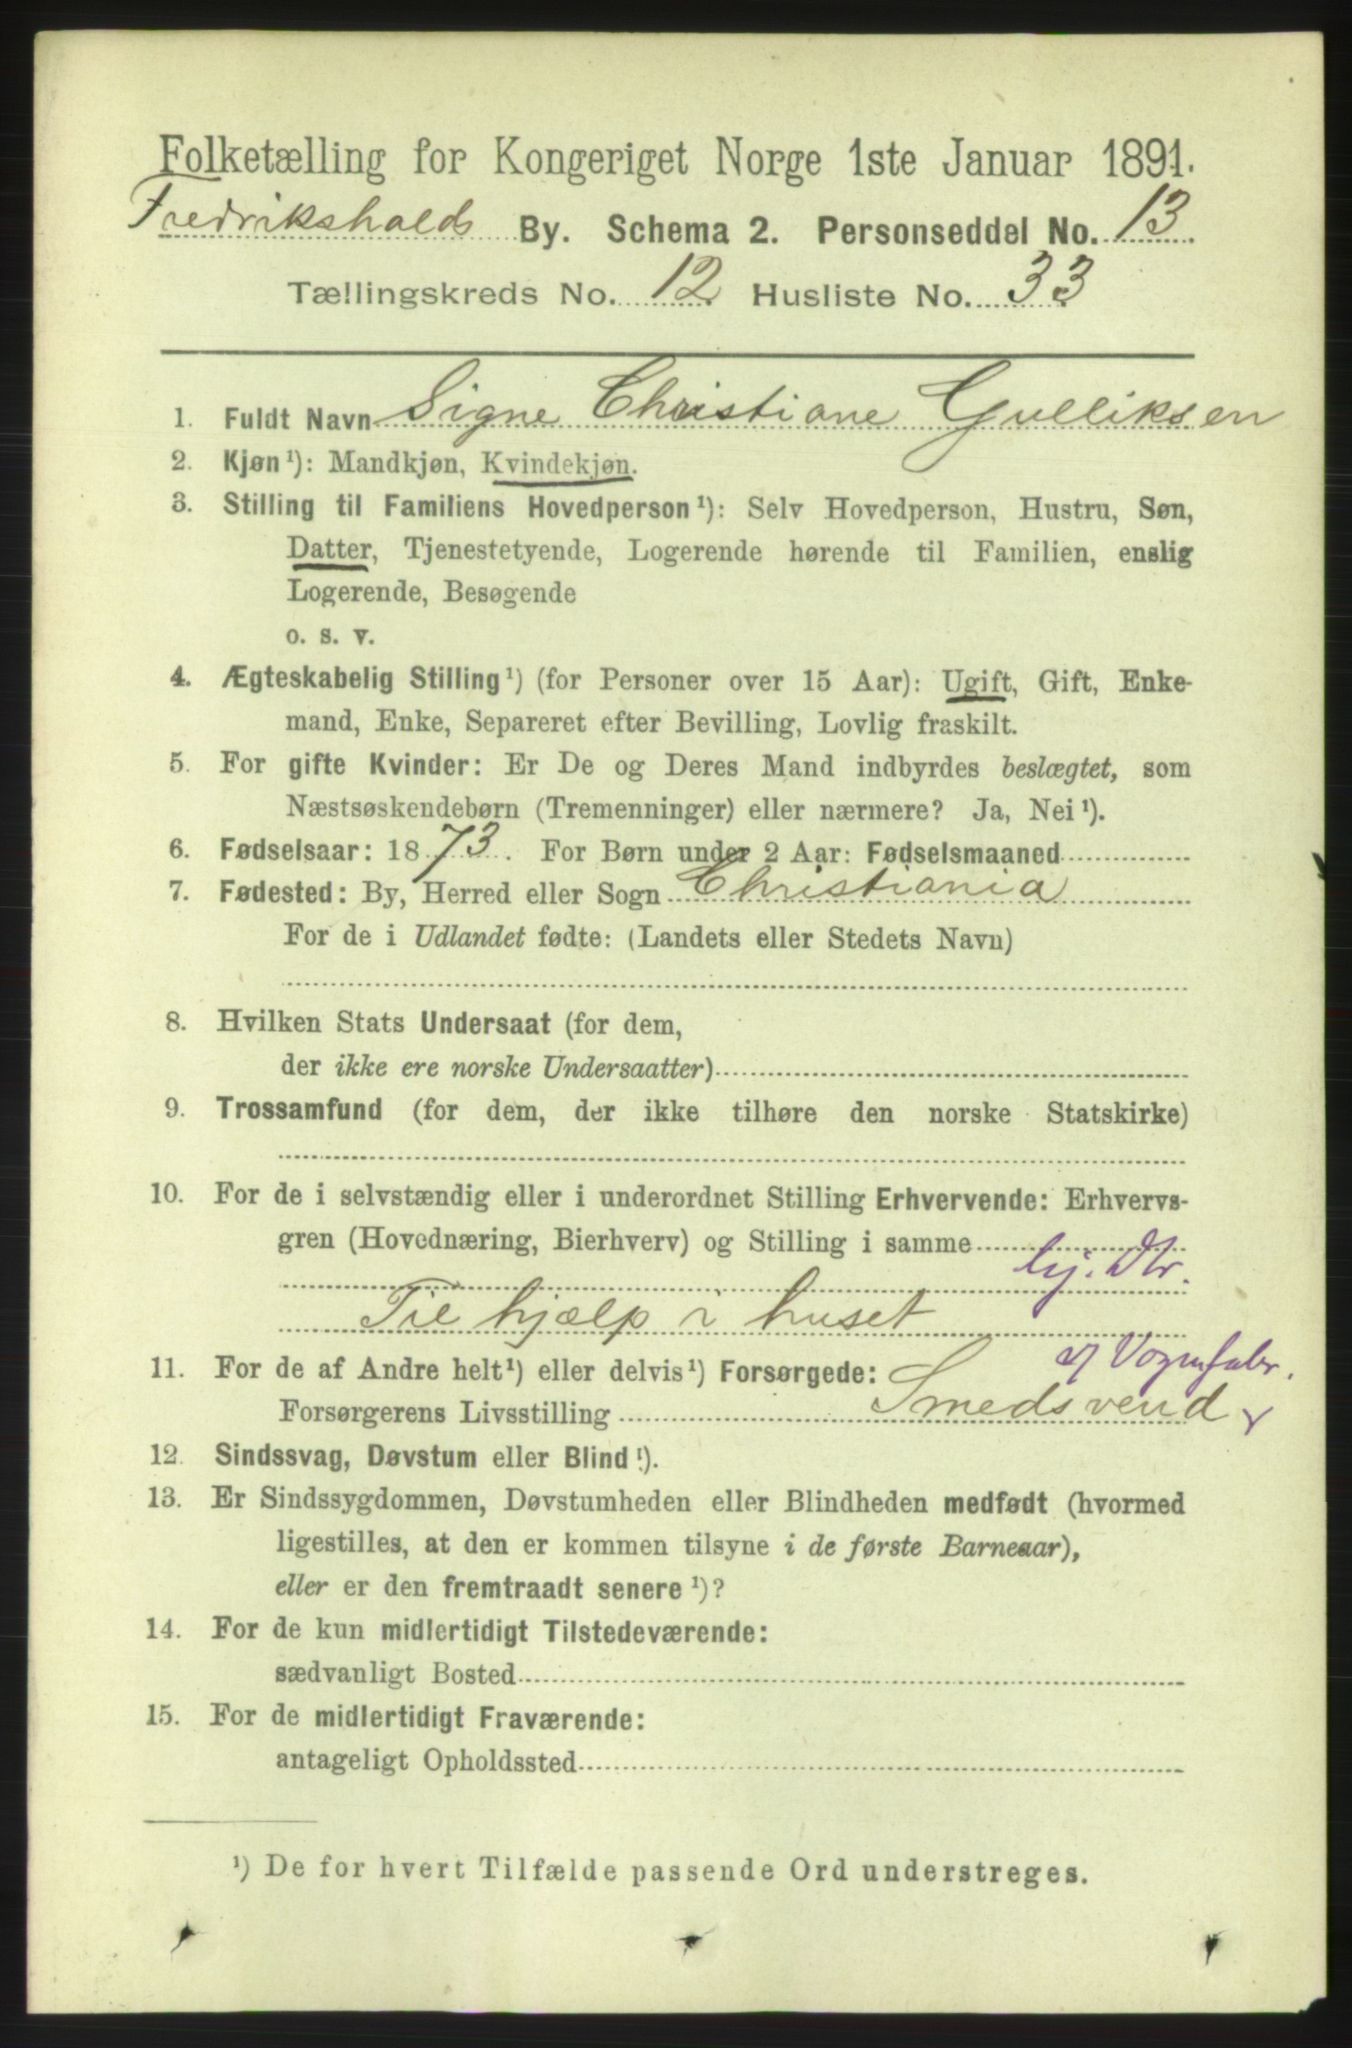 Folketælling for Kongeriget Norge 1ste Januar 1891.
Fredrikshalds By. Schema 2. Personseddel No. 13
Tællingskreds No. 12 Husliste No. 33
1. Fuldt Navn Signe Christiane Gulliksen
2. Kjøn¹): Mandkjøn, Kvindekjøn.
3. Stilling til Familiens Hovedperson¹): Selv Hovedperson, Hustru, Søn,
Datter, Tjenestetyende, Logerende hørende til Familien, enslig
Logerende, Besøgende
o. s. v.
4. Ægteskabelig Stilling¹) (for Personer over 15 Aar): Ugift, Gift, Enke-
mand, Enke, Separeret efter Bevilling, Lovlig fraskilt.
5. For gifte Kvinder: Er De og Deres Mand indbyrdes beslægtet, som
Næstsøskendebørn (Tremenninger) eller nærmere? Ja, Nei¹).
6. Fødselsaar: 1873. For Børn under 2 Aar: Fødselsmaaned
7. Fødested: By, Herred eller Sogn Christiania
For de i Udlandet fødte: (Landets eller Stedets Navn)
8. Hvilken Stats Undersaat (for dem,
der ikke ere norske Undersaatter)
9. Trossamfund (for dem, der ikke tilhøre den norske Statskirke)
10. For de i selvstændig eller i underordnet Stilling Erhvervende: Erhvervs-
gren (Hovednæring, Bierhverv) og Stilling i samme
hj. Dtr.
Til hjælp i huset
11. For de af Andre helt¹) eller delvis¹) Forsørgede:
Vognfabr.
Forsørgerens Livsstilling Smedsvend
12. Sindssvag, Døvstum eller Blind¹).
13. Er Sindssygdommen, Døvstumheden eller Blindheden medfødt (hvormed
ligestilles, at den er kommen tilsyne i de første Barneaar),
eller er den fremtraadt senere¹)?
14. For de kun midlertidigt Tilstedeværende:
sædvanligt Bosted
15. For de midlertidigt Fraværende:
antageligt Opholdssted
¹) De for hvert Tilfælde passende Ord understreges.